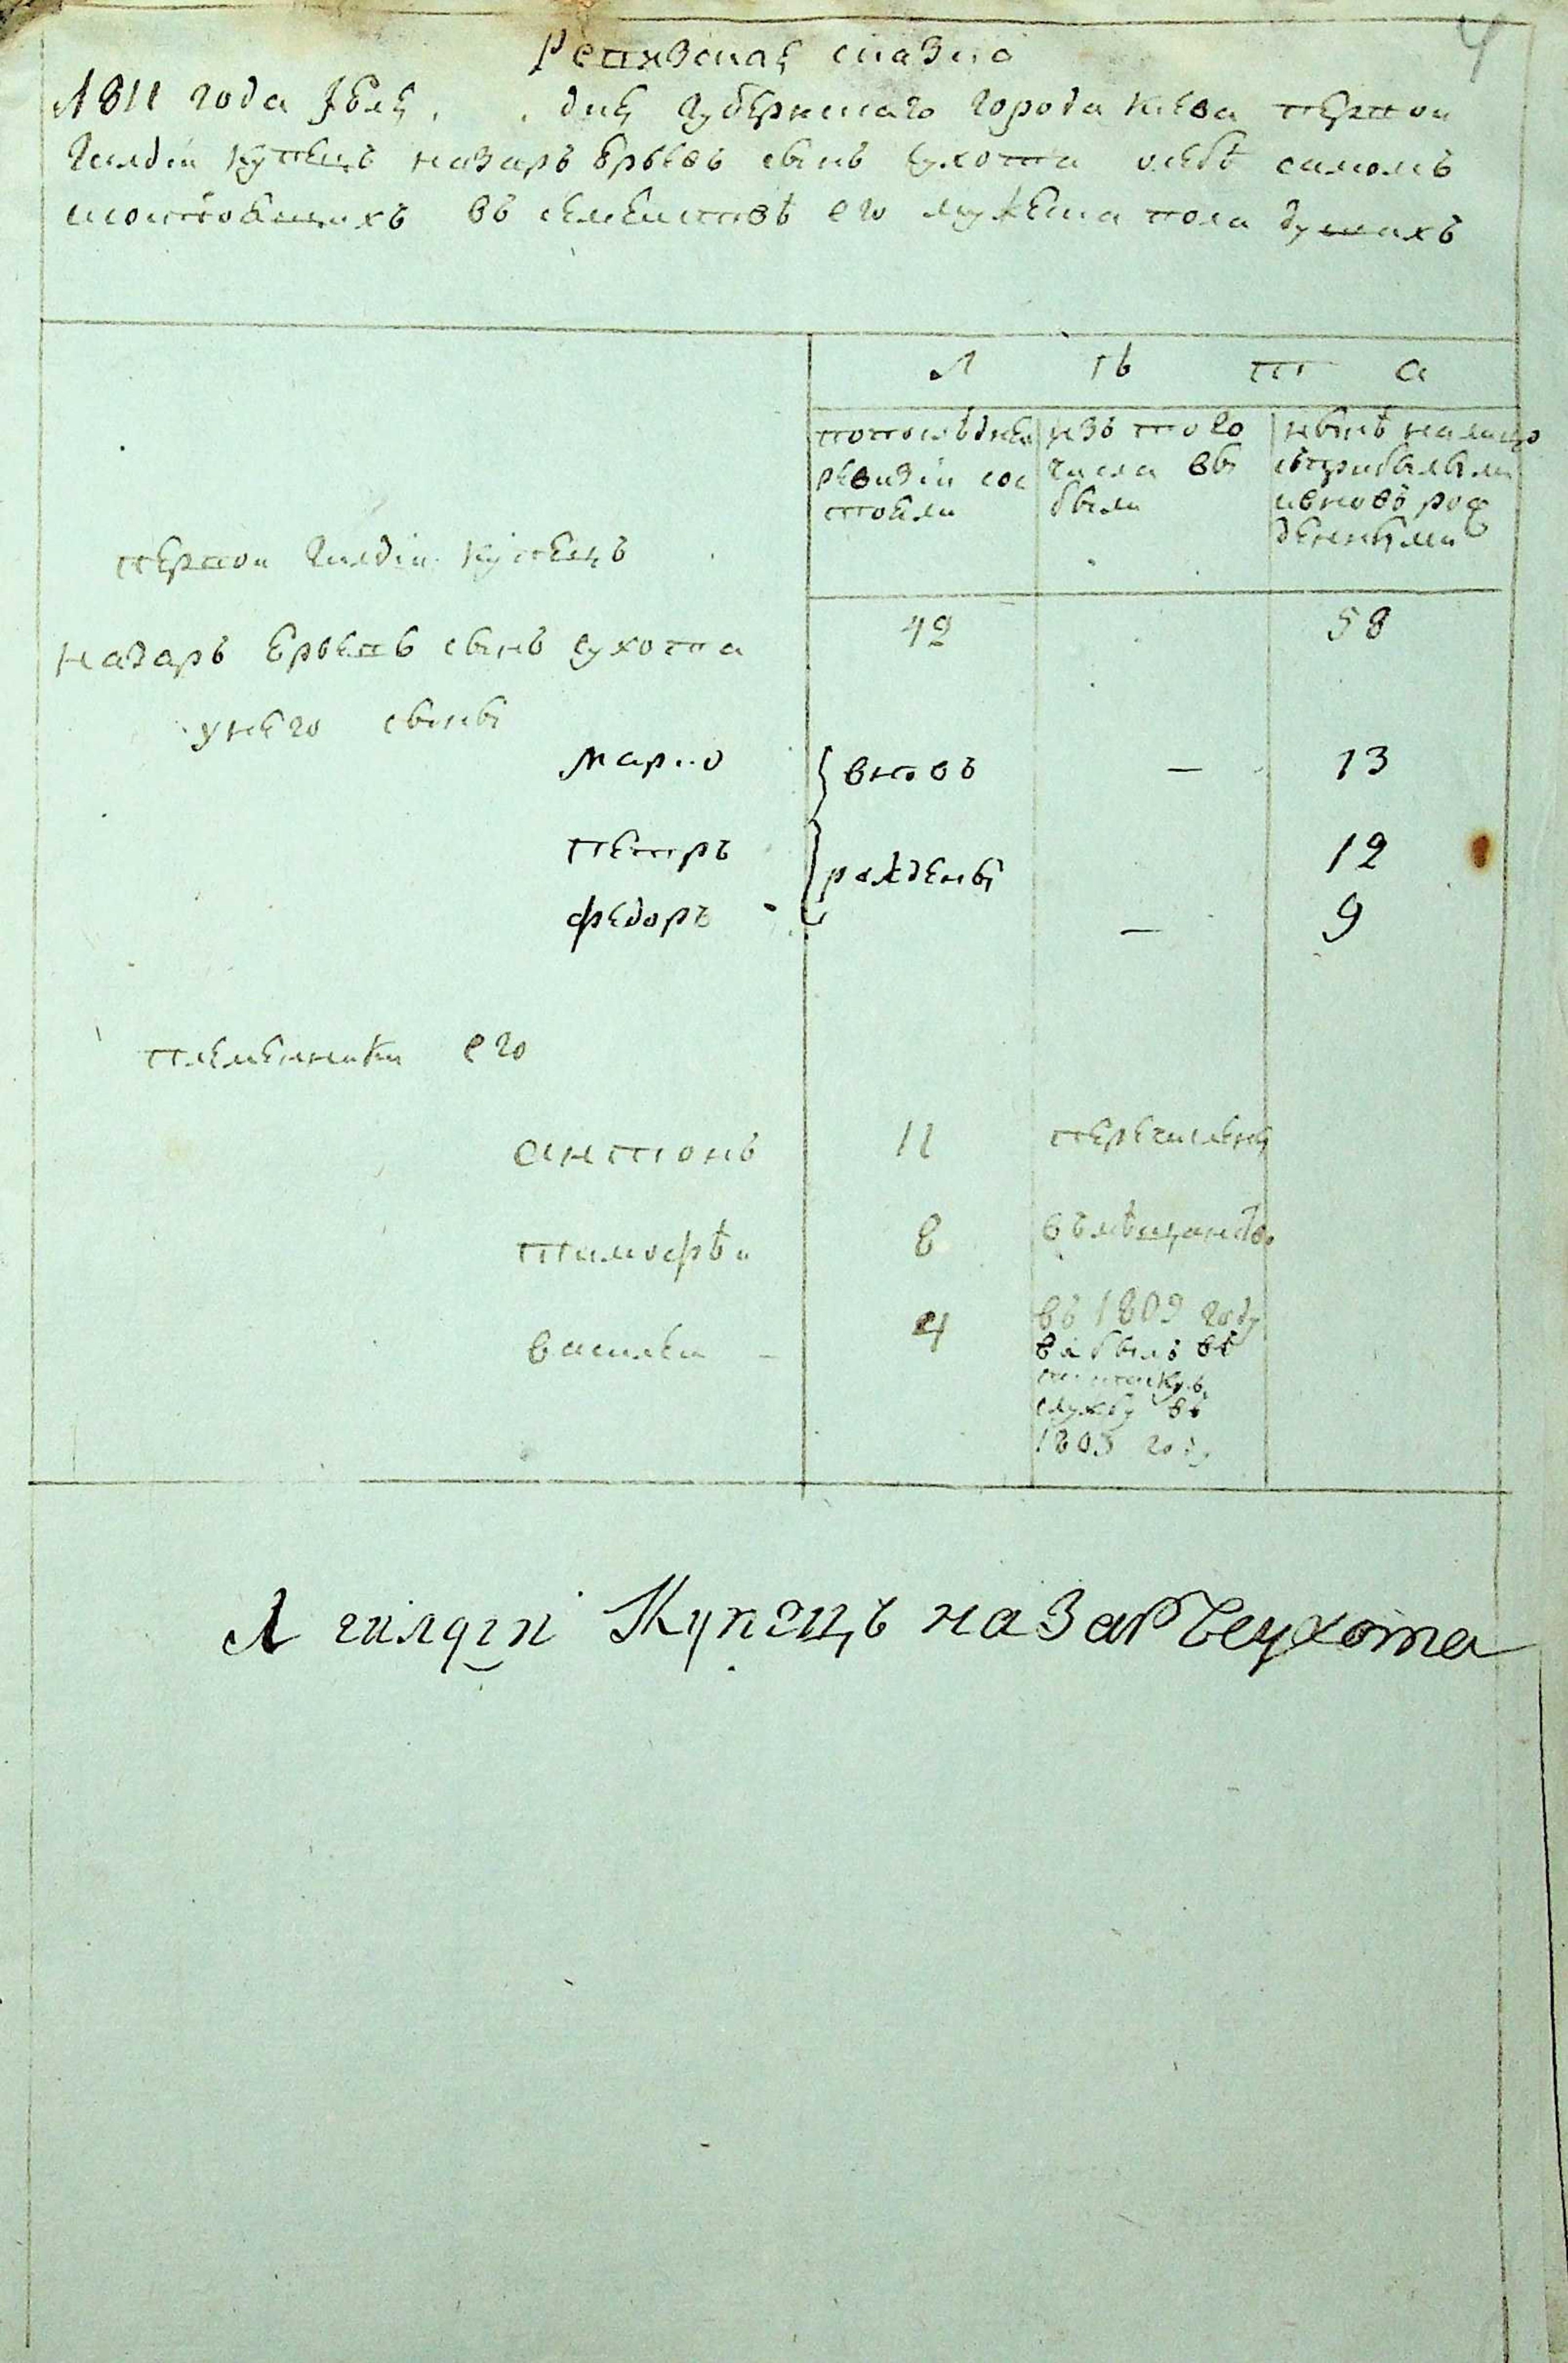 4
Ревизская сказка
1811 года Июля . . дня Губернскаго города Киева первой
Гилдіи купецъ назаръ Юрьевъ сынъ сухота о себѣ самомъ
и состоящихъ въ семействѣ его мужеска пола душахъ
Л ѣ т а
попослѣдней
ревизіи сос
тояли
изъ того
числа вы
были
нынѣ налицо
съ прибылыми
и вновь рож
денными
первои Гилдіи купецъ
назаръ сынъ сухота 42 58
у него сыны
марко вновь — 13
петръ рождены 12
федоръ — 9
племенники его
антонъ 11 перечислены
тимофѣи 8 въ мѣщанство
въ 1809 году
василеи 4
выбылъ въ
службу въ
1805 году
1 гилдіи Купецъ назаръ сухота